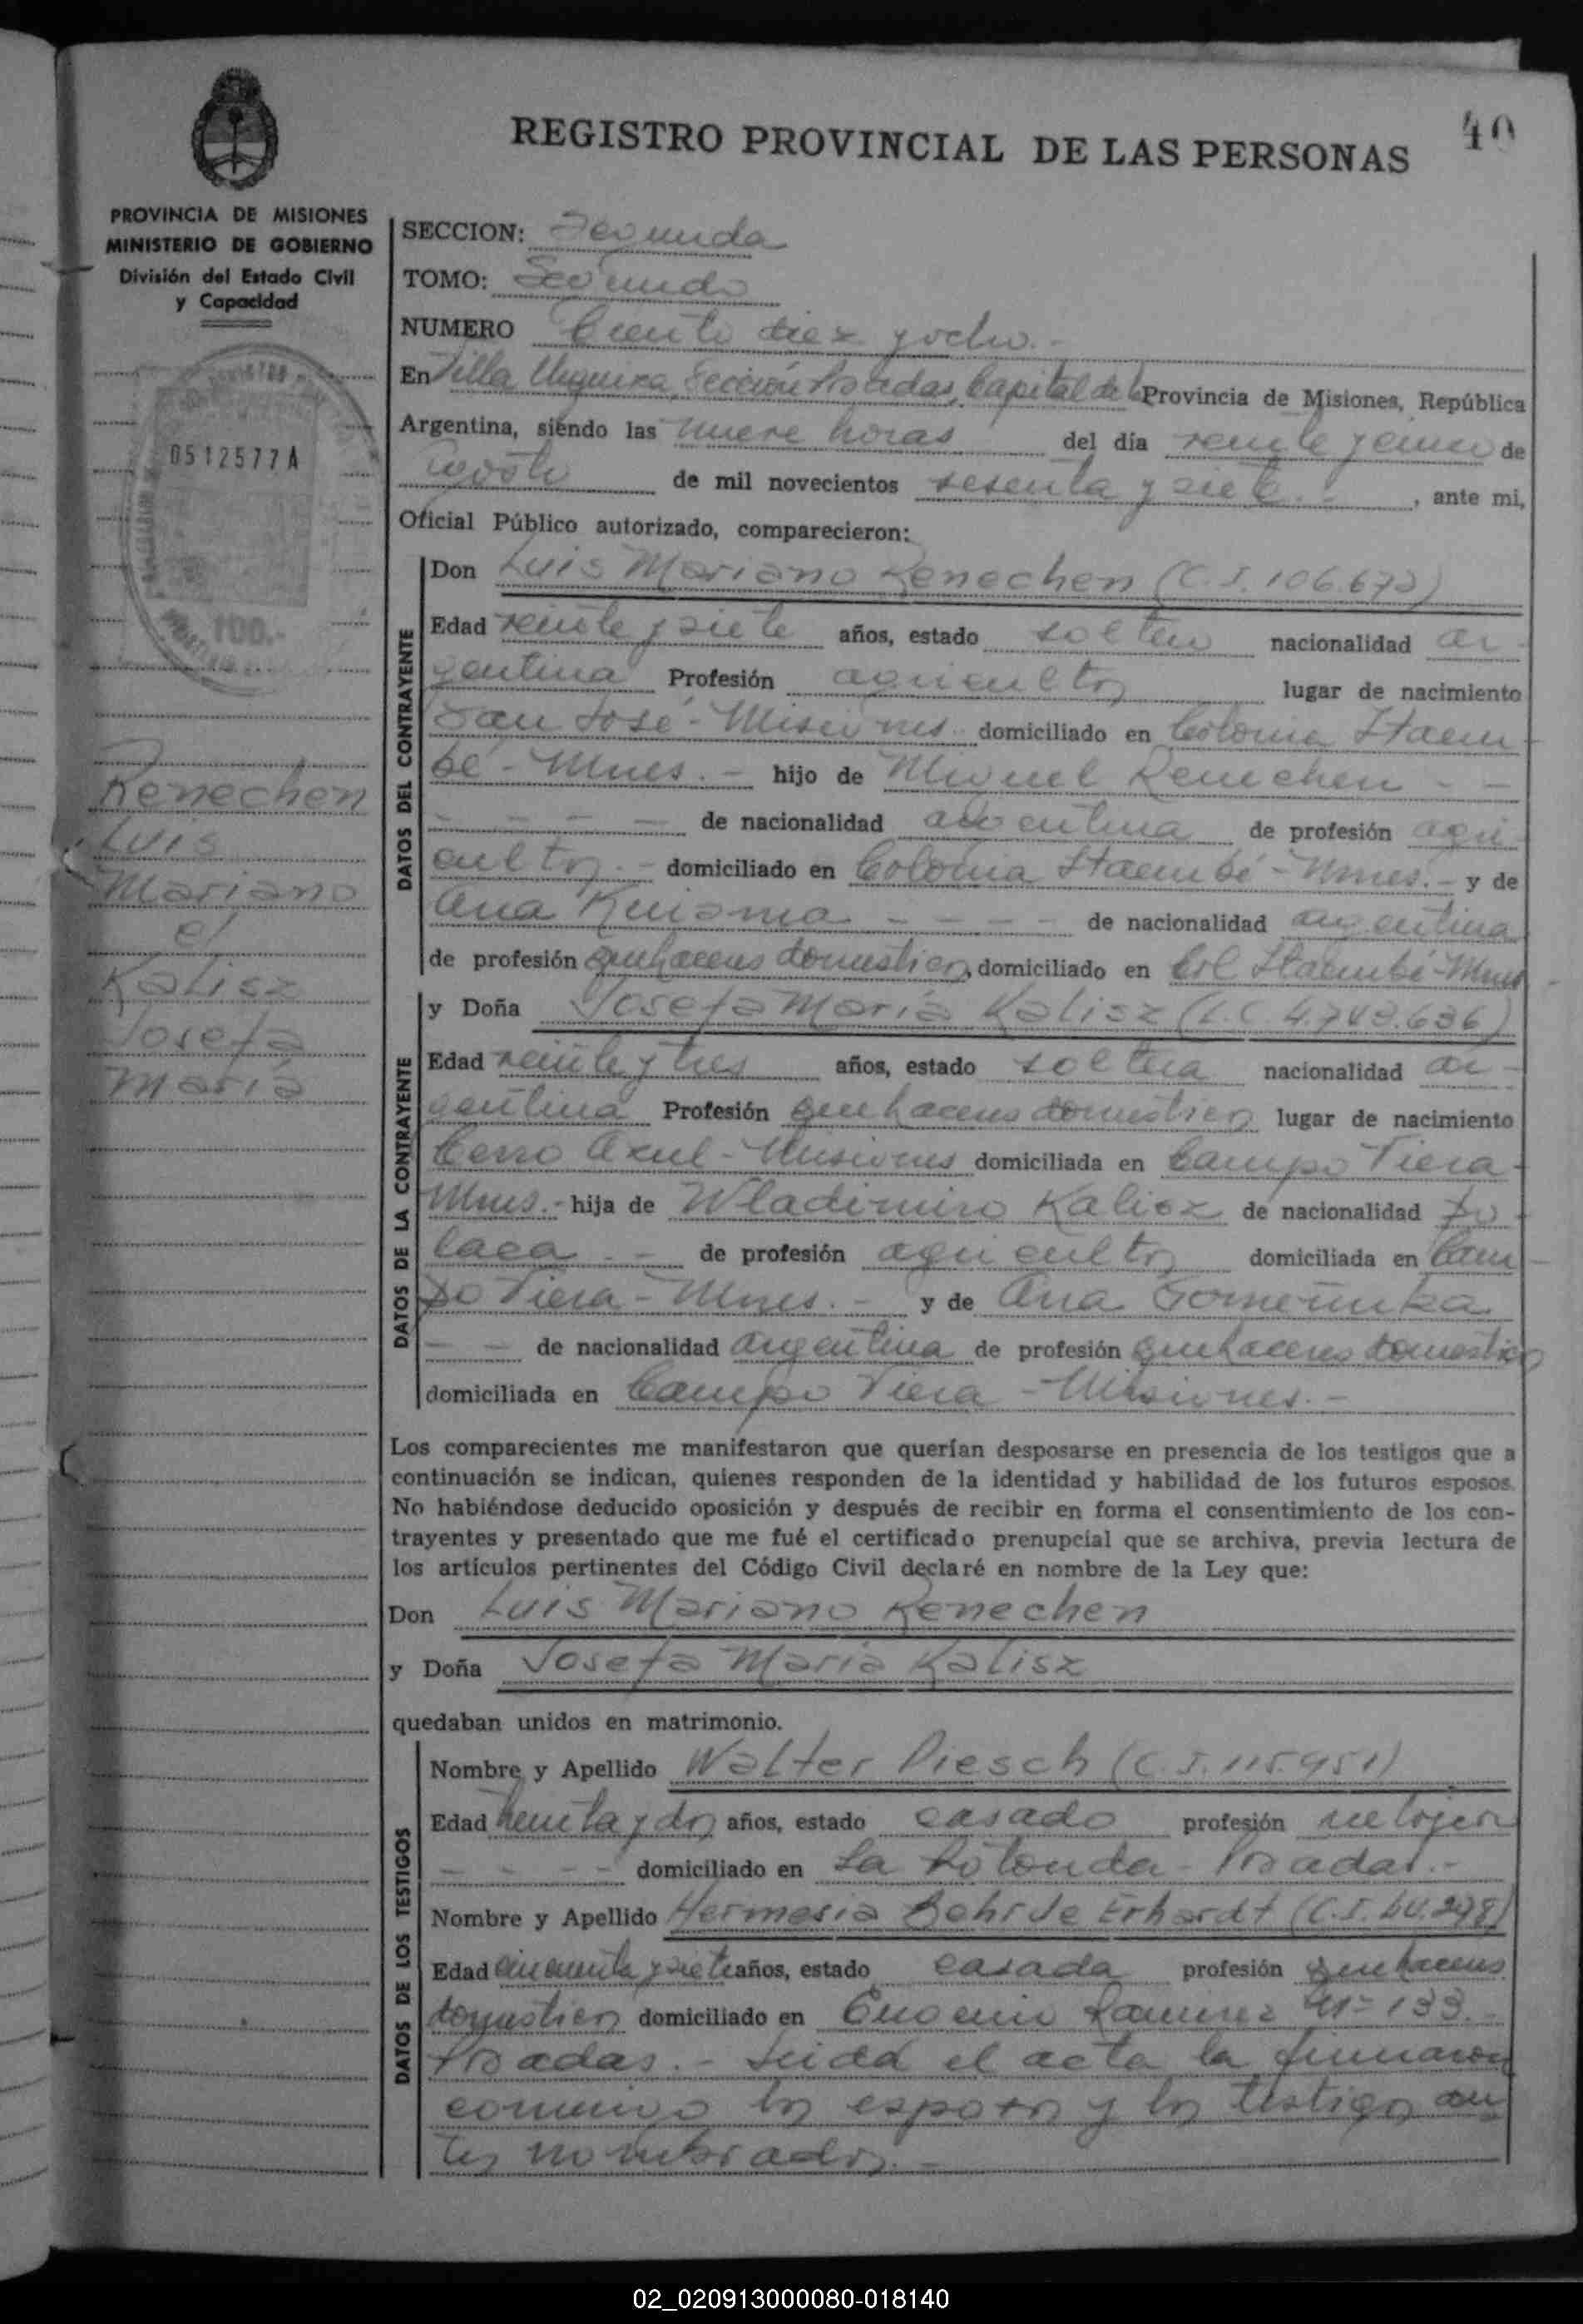 40
REGISTRO PROVINCIAL DE LAS PERSONAS
PROVINCIA DE MISIONES
MINISTERIO DE GOBIERNO
División del Estado Civil
y Capacidad
0512577A
100.-
Renechen
Luis
Mariano
c/
Kalisz
Josefa
María
SECCION: Segunda
TOMO: Segundo
NUMERO Ciento diez y ocho.-
En Villa Urquiza, Sección Posadas, Capital de la Provincia de Misiones, República
Argentina, siendo las nueve horas del día veinte y cinco de
agosto de mil novecientos sesenta y siete.-, ante mi,
Oficial Público autorizado, comparecieron:
DATOS DEL CONTRAYENTE
Don Luis Mariano Renechen (C.I. 106.672)
Edad veinte y siete años, estado soltero nacionalidad ar-
gentina Profesión agricultor lugar de nacimiento
San José - Misiones domiciliado en Colonia Itaem-
bé - Mnes.- hijo de Miguel Renechen - -
- - - - de nacionalidad argentina de profesión agri-
cultor.- domiciliado en Colonia Itaembé - Mnes.- y de
Ana - - - - de nacionalidad argentina
de profesión quehaceres domésticos, domiciliado en Col. Itaembé - Mnes
DATOS DE LA CONTRAYENTE
y Doña Josefa María Kalisz (L.C. 4.743.636)
Edad veinte y tres años, estado soltera nacionalidad ar-
gentina Profesión quehaceres domésticos lugar de nacimiento
Cerro Azul - Misiones domiciliada en Campo Viera -
Mnes.- hija de Wladimiro Kalisz de nacionalidad po-
laca.- de profesión agricultor domiciliada en Cam-
po Viera - Mnes.- y de Ana
- - de nacionalidad argentina de profesión quehaceres domésticos
domiciliada en Campo Viera - Misiones.-
Los comparecientes me manifestaron que querían desposarse en presencia de los testigos que a
continuación se indican, quienes responden de la identidad y habilidad de los futuros esposos.
No habiéndose deducido oposición y después de recibir en forma el consentimiento de los con-
trayentes y presentado que me fué el certificado prenupcial que se archiva, previa lectura de
los artículos pertinentes del Código Civil declaré en nombre de la Ley que:
Don Luis Mariano Renechen
y Doña Josefa María Kalisz
quedaban unidos en matrimonio.
DATOS DE LOS TESTIGOS
Nombre y Apellido Walter Piesch (C.I. 115.951)
Edad treinta y dos años, estado casado profesión relojero
- - - - domiciliado en La Rotonda - Posadas.-
Nombre y Apellido Hermesia Behr de Erhardt (C.I.
Edad cincuenta y siete años, estado casada profesión quehaceres
domésticos domiciliado en Eugenio Ramirez Nº 133.-
Posadas.- Leida el acta la firmaron
conmigo los esposos y los testigos an-
tes nombrados.-
02_020913000080-018140